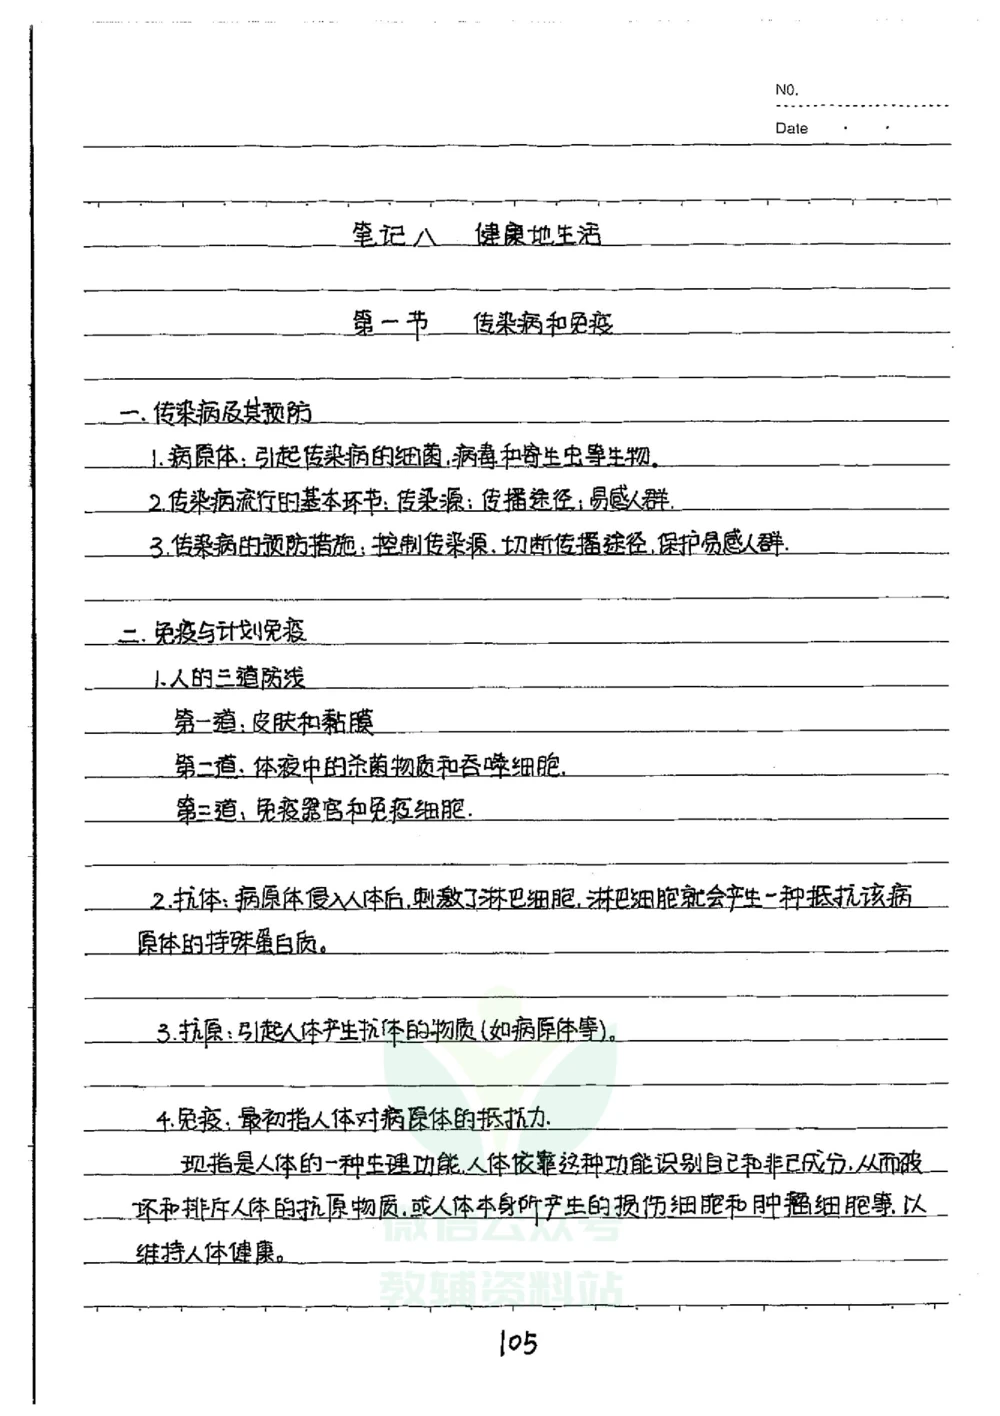 NO.
Date
笔记八 健康地生活
第一节 传染病和免疫
一.传染病及其预防
1.病原体:引起传染病的细菌.病毒和寄生虫等生物。
2.传染病流行的基本环节:传染源;传播途径;易感人群.
3.传染病的预防措施:控制传染源.切断传播途径.保护易感人群.
二.免疫与计划免疫
1.人的三道防线
第一道:皮肤和黏膜
第二道:体液中的杀菌物质和吞噬细胞.
第三道:免疫器官和免疫细胞.
2.抗体:病原体侵入人体后,刺激了淋巴细胞,淋巴细胞就会产生一种抵抗该病
原体的特殊蛋白质。
3.抗原:引起人体产生抗体的物质(如病原体等)。
4.免疫:最初指人体对病原体的抵抗力.
现指是人体的一种生理功能,人体依靠这种功能识别自己和非己成分,从而破
坏和排斥人体的抗原物质,或人体本身所产生的损伤细胞和肿瘤细胞等,以
维持人体健康。
微信公众号
教辅资料站
105